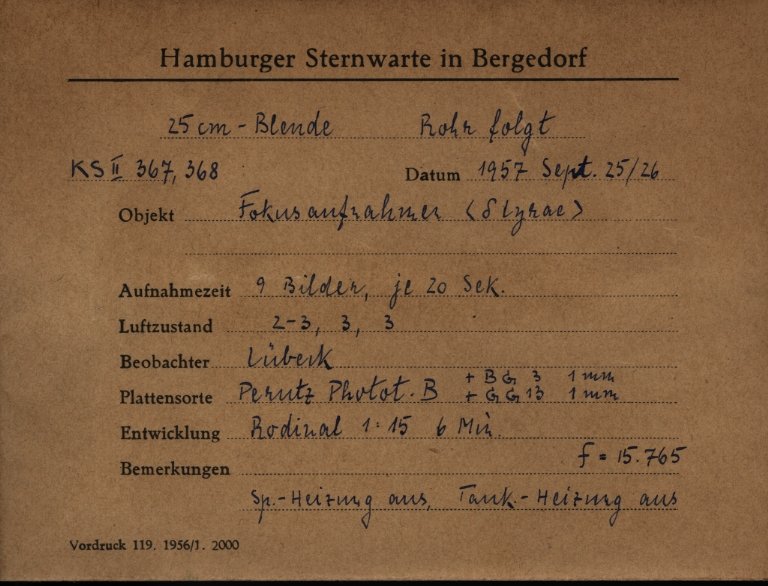 Hamburger Sternwarte in Bergedorf
25 cm - Blende Rohr folgt
KS II 367, 368 Datum 1957 Sept. 25/26
Objekt Fokusaufnahmen (δ Lyrae)
Aufnahmezeit 9 Bilder, je 20 Sek.
Luftzustand 2-3, 3, 3
Beobachter Lübeck
+ BG 3 1 mm
Plattensorte Perutz Photot. B + GG 13 1 mm
Entwicklung Rodinal 1:15 6 Min.
Bemerkungen f = 15.765
Sp.-Heizung aus, Tauk.-Heizung aus
Vordruck 119. 1956/1. 2000